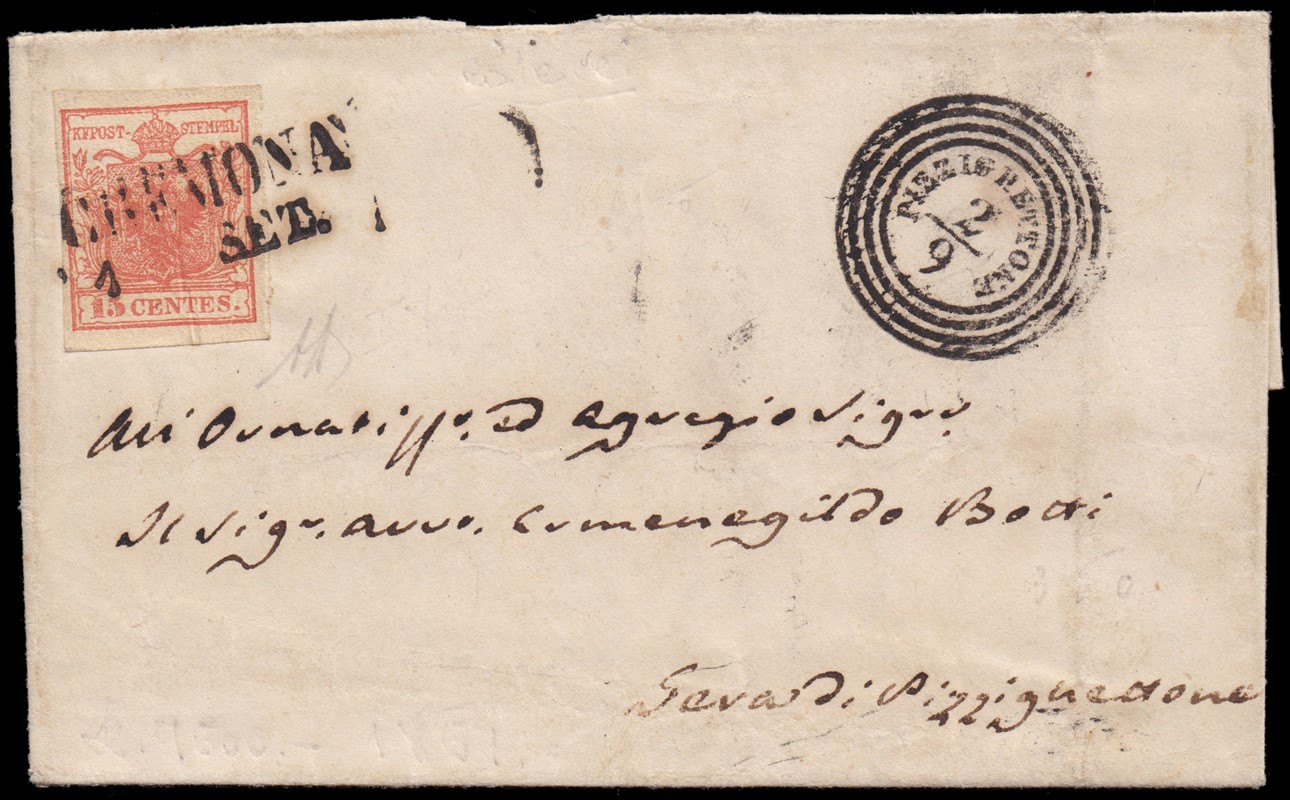 KKPOST-STEMPEL
CREMONA
1 SET.
15 CENTES.
PIZZIGHETTONE
2/9
All Ornatiss.º ed Egregio Sigr.
Il Sigr. Avvo. Ermenegildo Botti
Gera di Pizzighettone